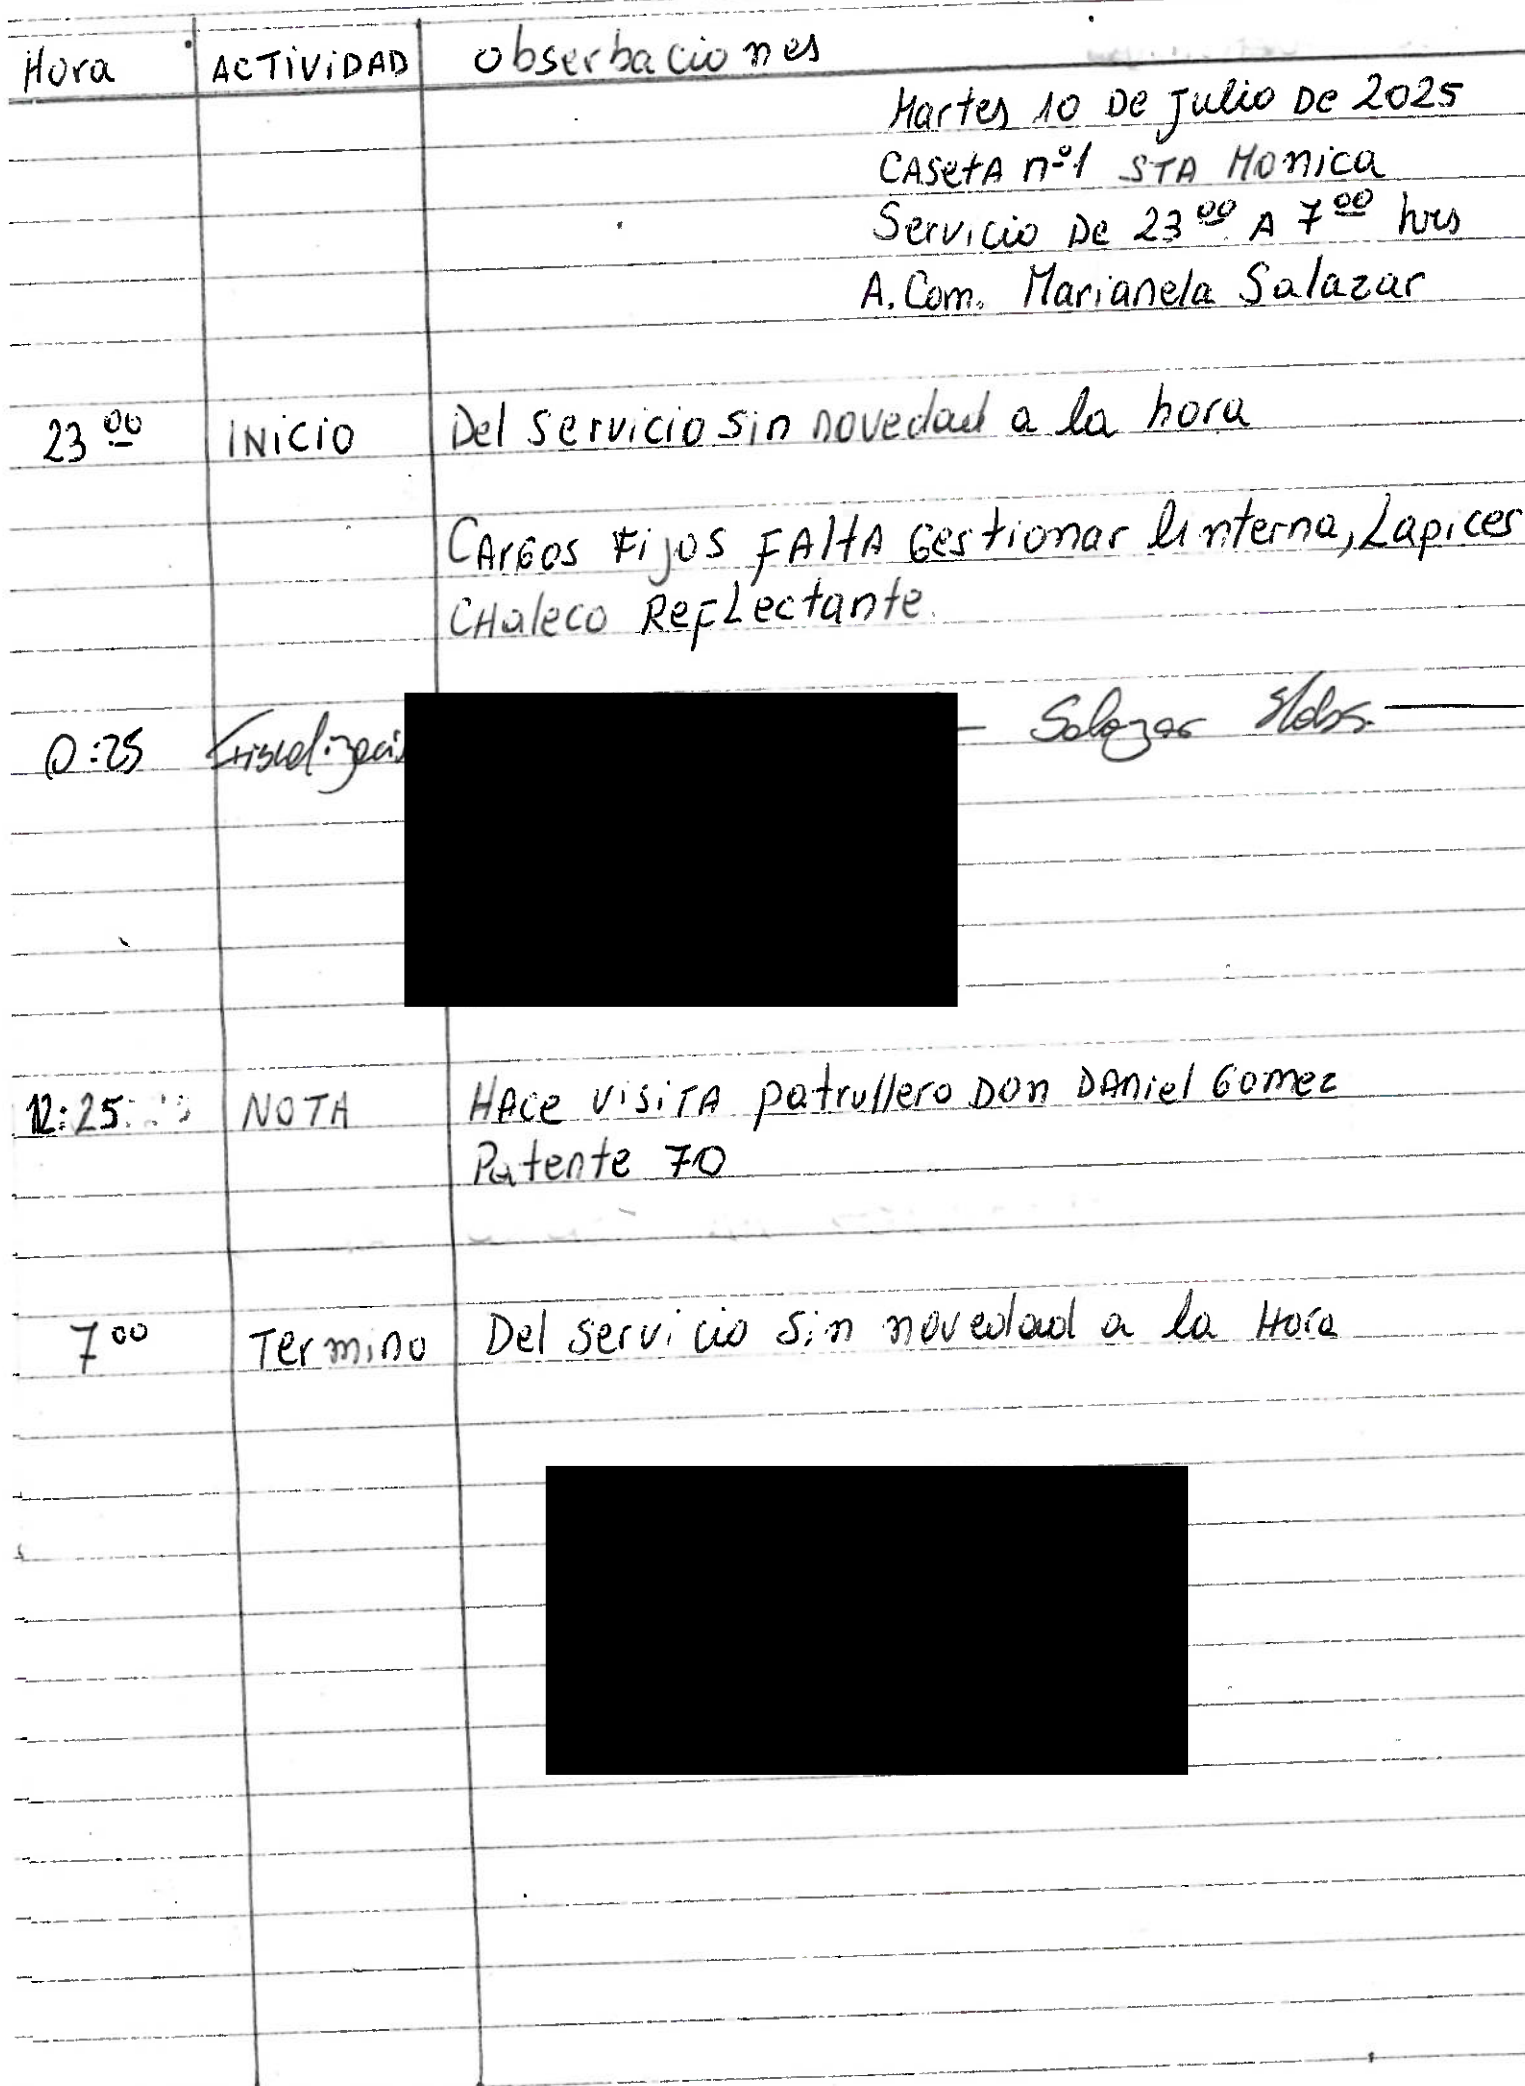 Hora ACTiViDAD obserbaciones
Martes 10 De Julio De 2025
CASetA nº1 STA Monica
Servicio De 23 00 A 7 00 hrs
A. Com. Marianela Salazar
23 00 INiCiO Del servicio sin novedad a la hora
CArGos Fijos FAltA Gestionar linterna, Lapices
CHaleco RefLectante
0:25 Salazar
12:25 NOTA HAce visiTA patrullero Don DAniel Gomez
Patente 70
7 00 Termino Del servicio sin novedad a la Hora